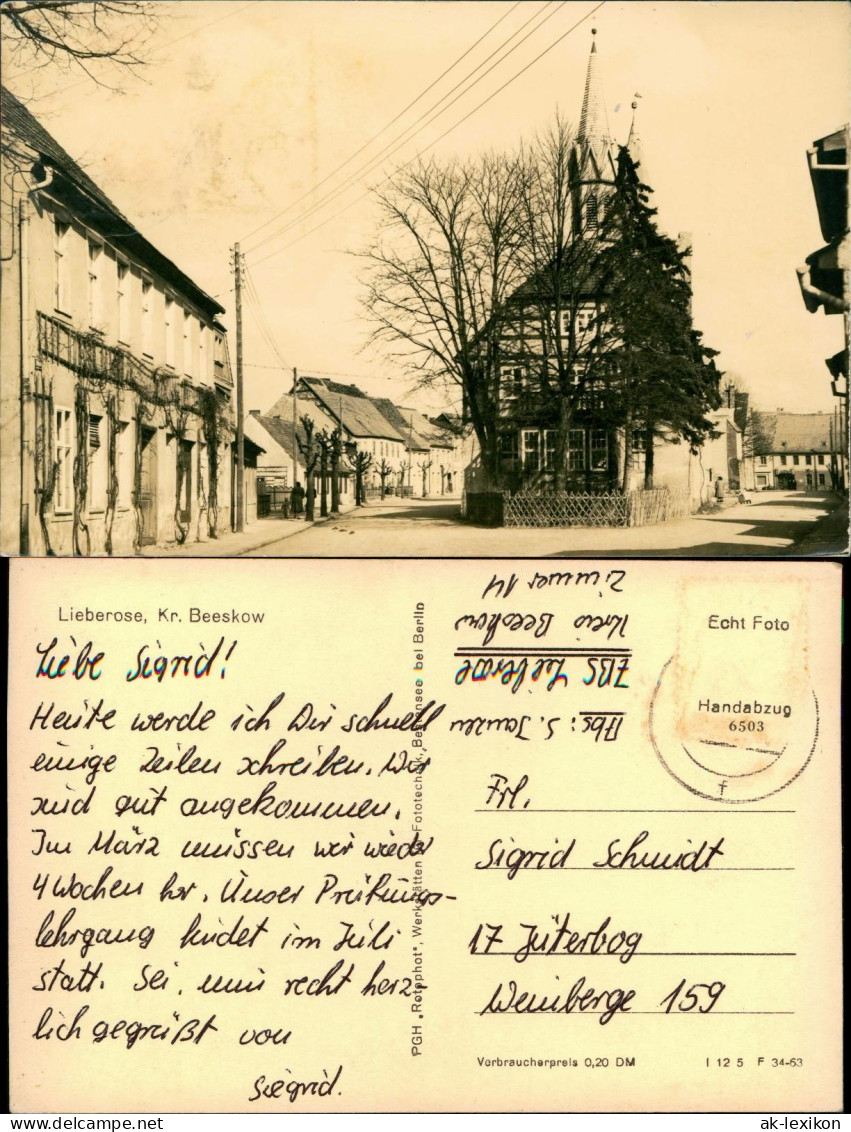 Lieberose, Kr. Beeskow
Liebe Sigrid!
Heute werde ich Dir schnell
einige Zeilen schreiben. Wir
sind gut angekommen.
Im März müssen wir wieder
4 Wochen her. Unser Prüfungs-
lehrgang findet im Juli
statt. Sei, nun recht herz-
lich gegrüßt von
Siegrid.
PGH „Rotophot", Werkstätten Fototechnik, Bestensee bei Berlin
Abs: S.
ZBS Lieberose
Kreis Beeskow
Zimmer 14
Echt Foto
Handabzug
6503
f
Frl.
Sigrid Schmidt
17 Jüterbog
Weinberge 159
Verbraucherpreis 0,20 DM
I 12 5 F 34-63
ak-lexikon